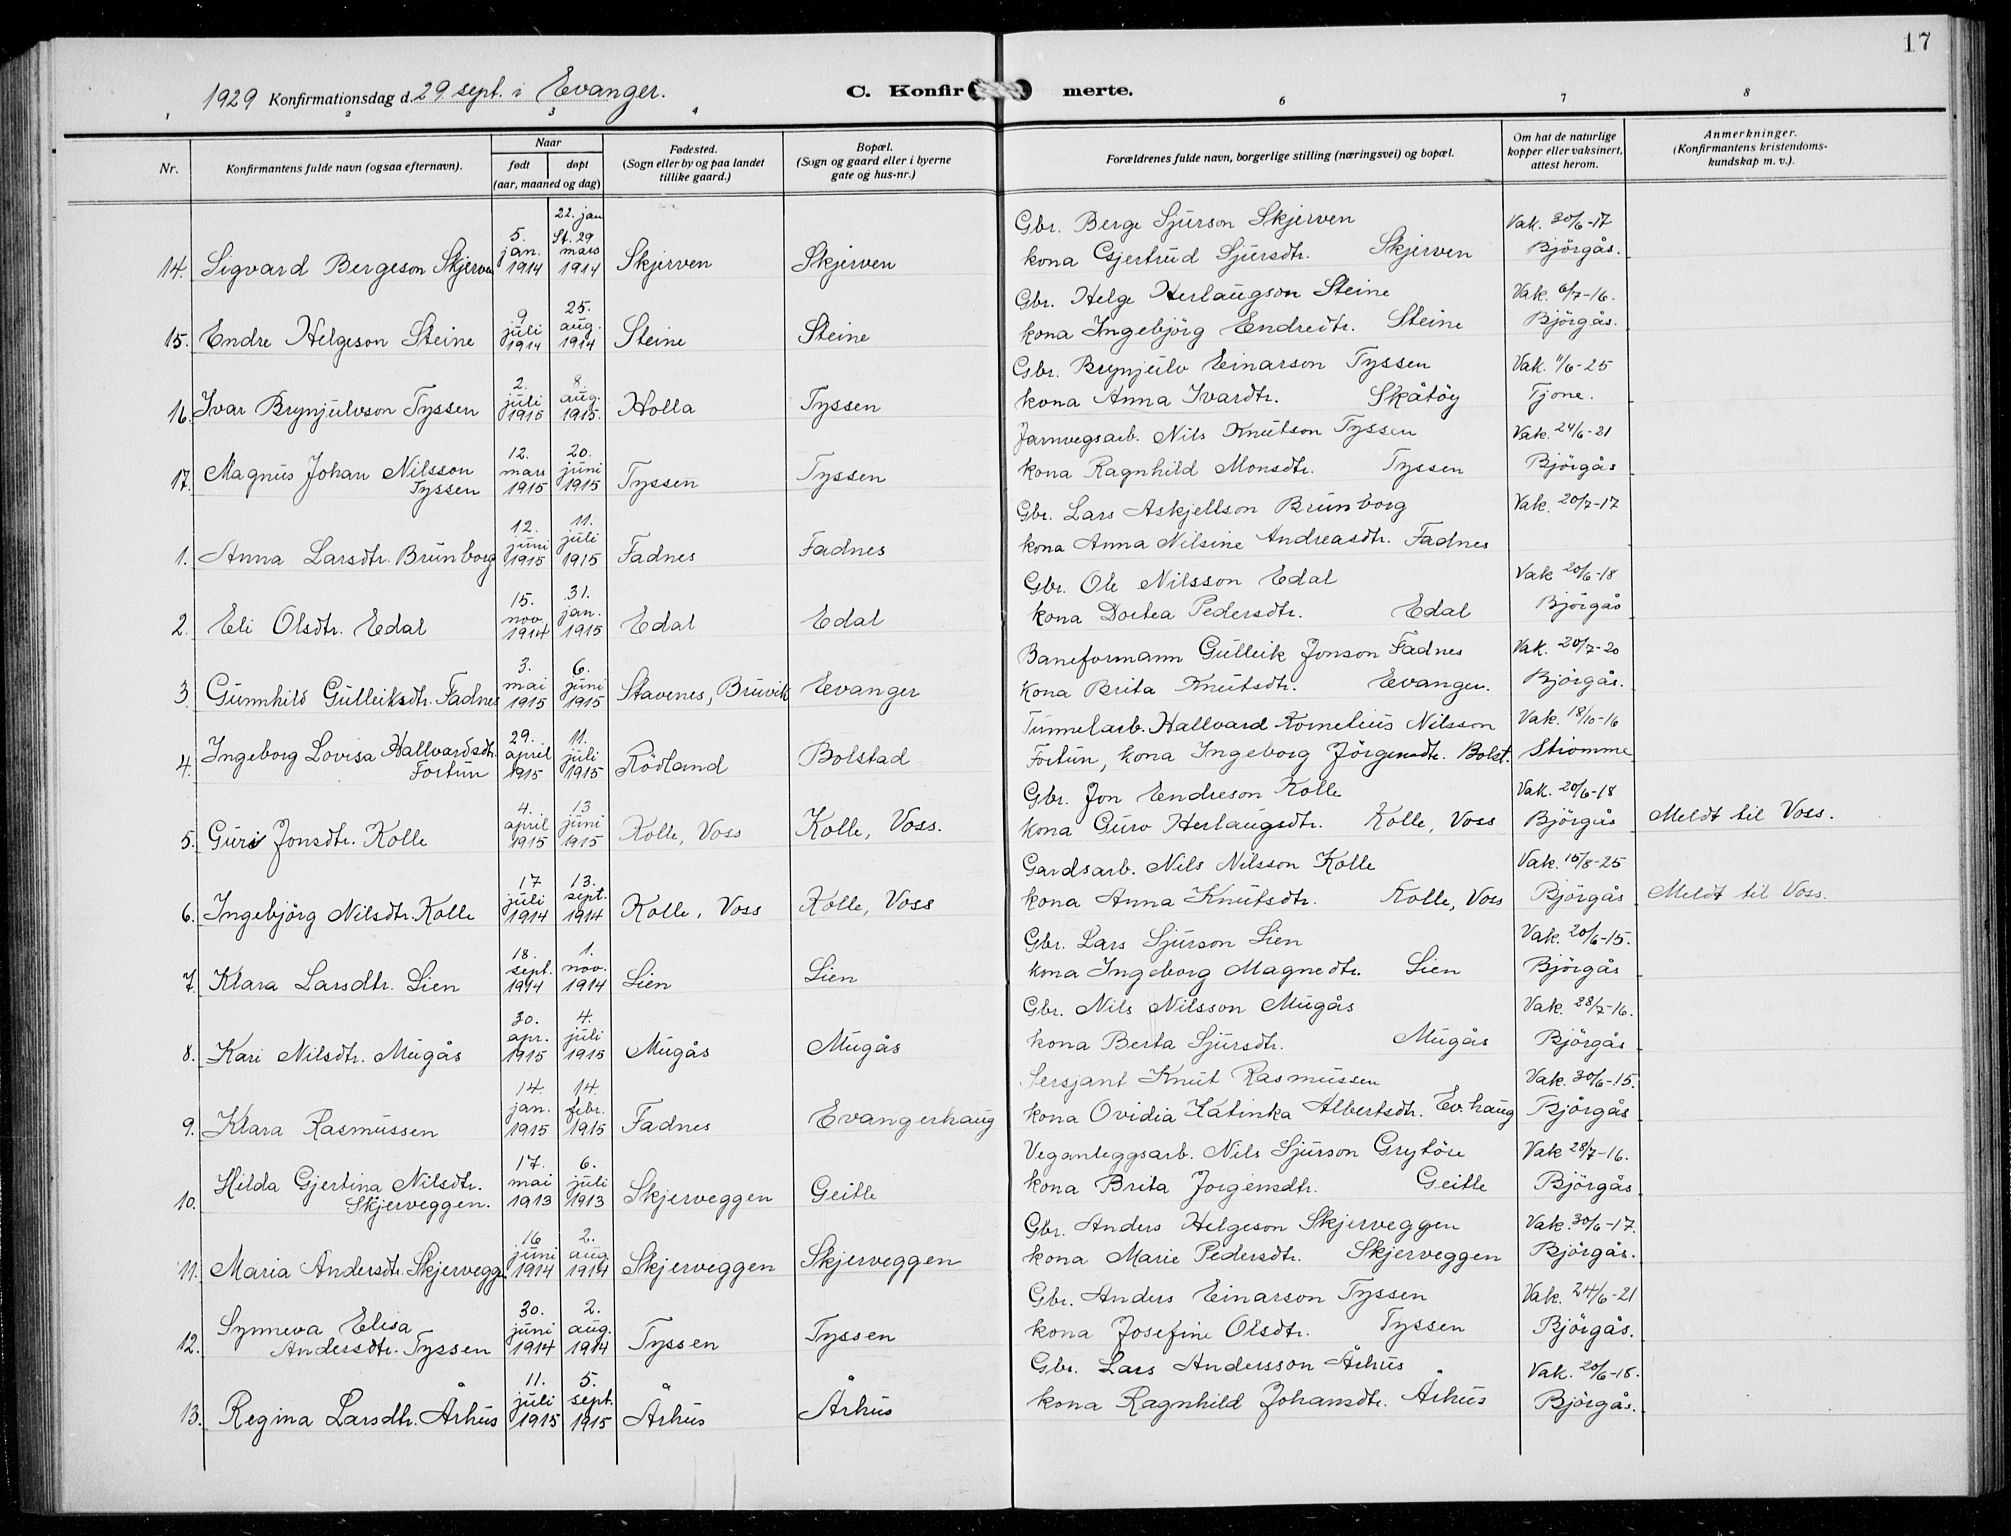 17
1929 Konfirmationsdag d. 29 sept. i Evanger.
C. Konfir merte.
1 2 3 4 6 7 8
Nr.
Konfirmantens fulde navn (ogsaa efternavn).
Naar
født døpt
(aar, maaned og dag)
Fødested.
(Sogn eller by og paa landet
tillike gaard.)
Bopæl.
(Sogn og gaard eller i byerne
gate og hus-nr.)
Forældrenes fulde navn, borgerlige stilling (næringsvei) og bopæl.
Om hat de naturlige
kopper eller vaksinert,
attest herom.
Anmerkninger.
(Konfirmantens kristendoms-
kundskap m. v.).
22. jan
5. St. 29 Gbr. Berge Sjurson Skjerven Vak. 30/6-17
jan. mars kona Gjertrud Sjursdtr. Skjerven Björgås.
14. Sigvard Bergeson Skjerven 1914 1914 Skjerven Skjerven
9 25. Gbr. Helge Herlaugson Steine Vak. 6/7-16.
juli aug. kona Ingebjörg Endredtr. Steine Björgås.
15. Endre Helgeson Steine 1914 1914 Steine Steine
2. 8. Gbr. Brynjulv Einarson Tyssen Vak. 11/6-25
juli aug. kona Anna Ivardtr. Skåtöy Tjone.
16. Ivar Brynjulvson Tyssen 1915 1915. Holla Tyssen
12. 20. Jarnvegsarb. Nils Knutson Tyssen Vak. 24/6-21
17. Magnus Johan Nilsson mars juni kona Ragnhild Monsdtr. Tyssen Björgås
Tyssen 1915 1915 Tyssen Tyssen
12. 11. Gbr. Lars Askjellson Brunborg Vak. 20/7-17
juni juli kona Anna Nilsine Andreasdtr. Fadnes
1. Anna Larsdtr. Brunborg 1915 1915 Fadnes Fadnes
15. 31. Gbr. Ole Nilsson Edal Vak 20/6-18
nov. jan. kona Dortea Pedersdtr. Edal Björgås
2. Eli Olsdtr. Edal 1914 1915 Edal Edal
3. 6. Baneformann Gulleik Jonson Fadnes Vak. 20/7-20
mai juni kona Brita Knutsdtr. Evanger. Björgås.
3. Gunnhild Gulleiksdtr. Fadnes 1915 1915 Stavenes, Bruvik Evanger
29. 11. Tunnelarb. Hallvard Kornelius Nilsson Vak. 18/10-16
4. Ingeborg Lovisa Hallvardsdtr. april juli Fortun, kona Ingeborg Jörgensdtr. Bolst. Stromme
Fortun 1915 1915 Rödland Bolstad
4. 13 Gbr. Jon Endreson Kolle Vak. 20/6-18
april juni kona Guro Herlaugsdtr. Kolle, Voss Björgås Meldt til Voss.
5. Guri Jonsdtr. Kolle 1915 1915 Kolle, Voss Kolle, Voss.
17 13. Gardsarb. Nils Nilsson Kolle Vak. 15/8-25
juli sept. kona Anna Knutsdtr. Kolle, Voss Björgås Meldt til Voss.
6. Ingebjörg Nilsdtr. Kolle 1914 1914 Kolle, Voss Kolle, Voss
18. 1. Gbr. Lars Sjurson Lien Vak. 20/6-15.
sept. nov. kona Ingeborg Magnedtr. Lien Björgås
7. Klara Larsdtr. Lien 1914 1914 Lien Lien
30. 4. Gbr. Nils Nilsson Mugås Vak. 28/7-16.
apr. juli kona Berta Sjursdtr. Mugås Björgås
8. Kari Nilsdtr. Mugås 1915 1915 Mugås Mugås
14. 14. Sersjant Knut Rasmussen Vak. 30/6-15.
jan. febr. kona Ovidia Katinka Albertsdtr. Ev. haug Bjørgås
9. Klara Rasmussen 1915 1915 Fadnes Evangerhaug
17. 6. Veganleggsarb. Nils Sjurson Grytöre Vak 28/7-16.
10. Hilda Gjertina Nilsdtr. mai juli kona Brita Jorgensdtr. Geitle Bjørgås
Skjerveggen. 1913 1913 Skjerveggen Geitle
16 2. Gbr. Anders Helgeson Skjerveggen Vak. 30/6-17.
juni aug. kona Marie Pedersdtr. Skjerveggen Bjørgås.
11. Maria Andersdtr. Skjervegg 1914 1914 Skjerveggen Skjerveggen
30. 2. Gbr. Anders Einarson Tyssen Vak. 24/6-21
12. Synneva Elisa juni aug. kona Josefine Olsdtr. Tyssen Bjørgås.
Andersdtr. Tyssen 1914 1914 Tyssen Tyssen
11. 5. Gbr. Lars Andersson Århus Vak. 20/6-18.
juli sept. kona Ragnhild Johansdtr. Århus Bjørgås.
13. Regina Larsdtr. Århus 1915 1915 Århus Århus